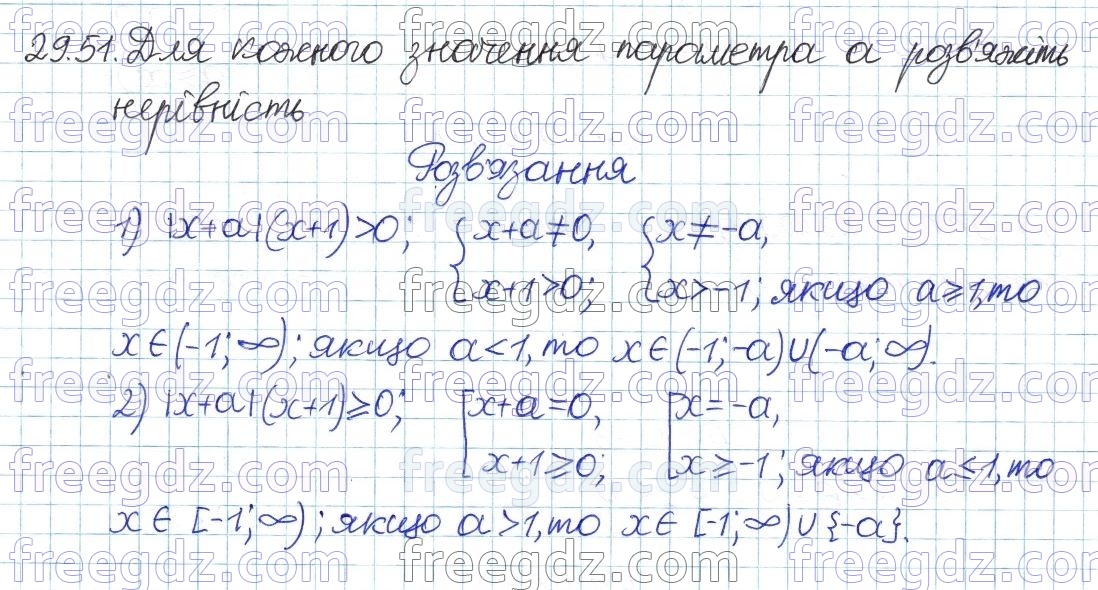 29.51. Для кожного значення параметра а розв'яжіть
нерівність
Розв'язання
1) |x+a|(x+1)>0; { x+a≠0, { x≠-a,
x+1>0; x>-1; якщо a≥1, то
x∈(-1;∞); якщо a<1, то x∈(-1;-a)∪(-a;∞).
2) |x+a|(x+1)≥0; [ x+a=0, [ x=-a,
x+1≥0; x≥-1; якщо a≤1, то
x∈[-1;∞); якщо a>1, то x∈[-1;∞)∪{-a}.
freegdz.com